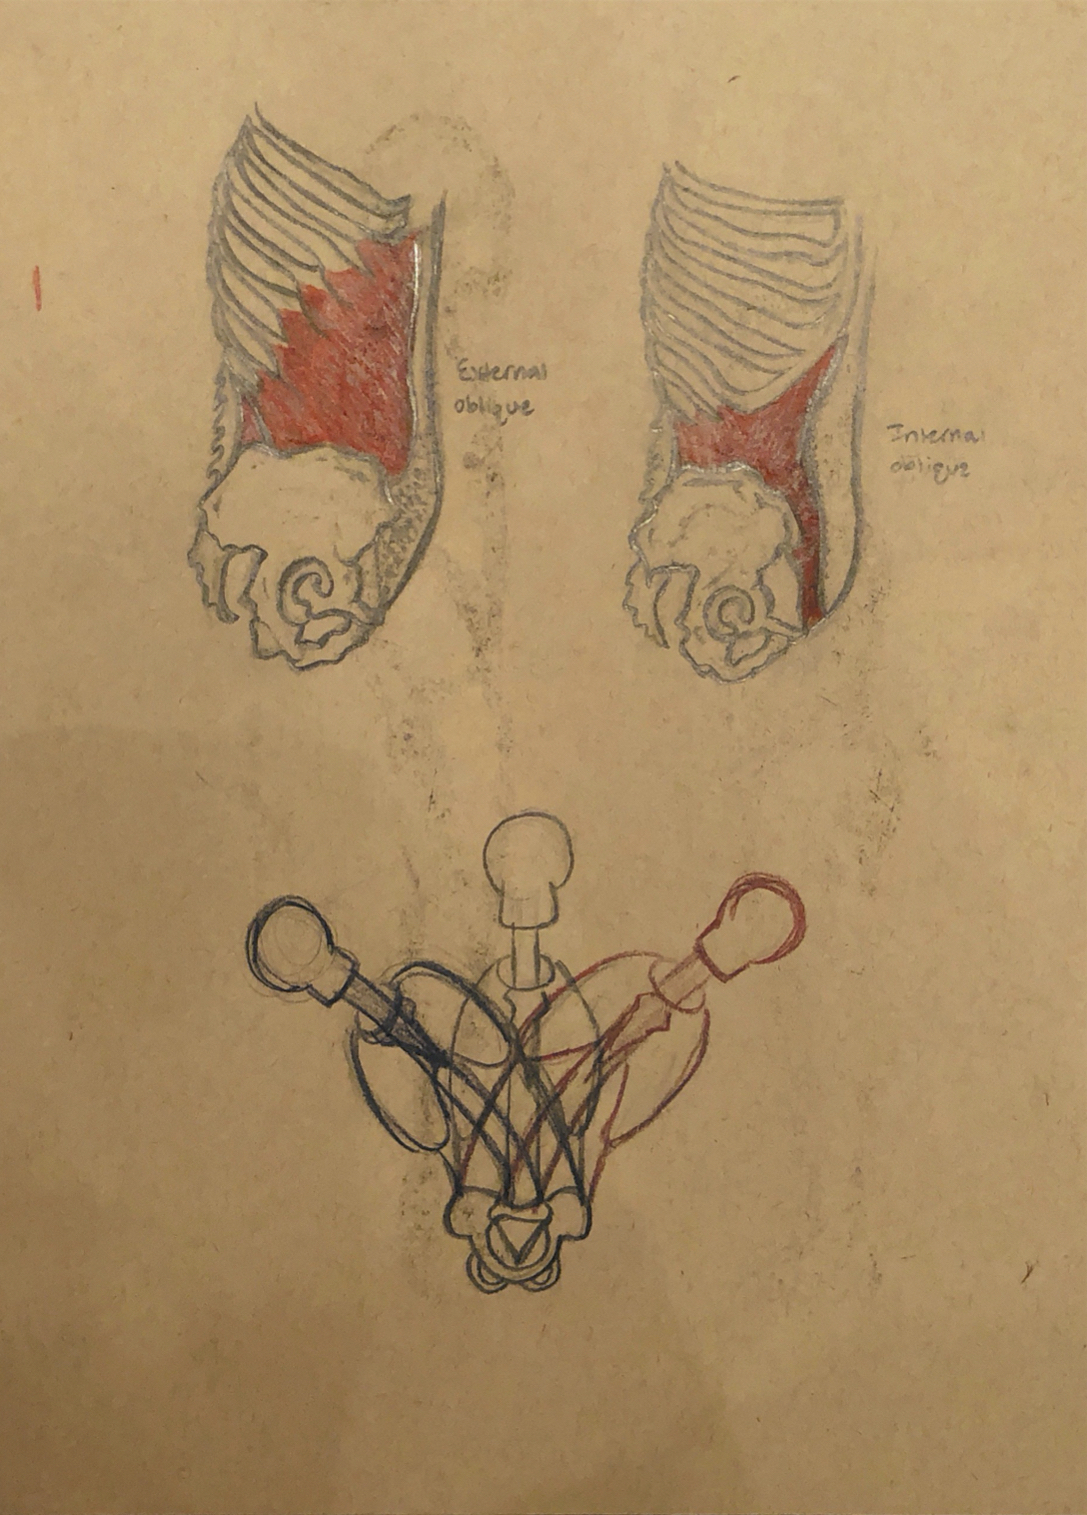 External
oblique
Internal
oblique